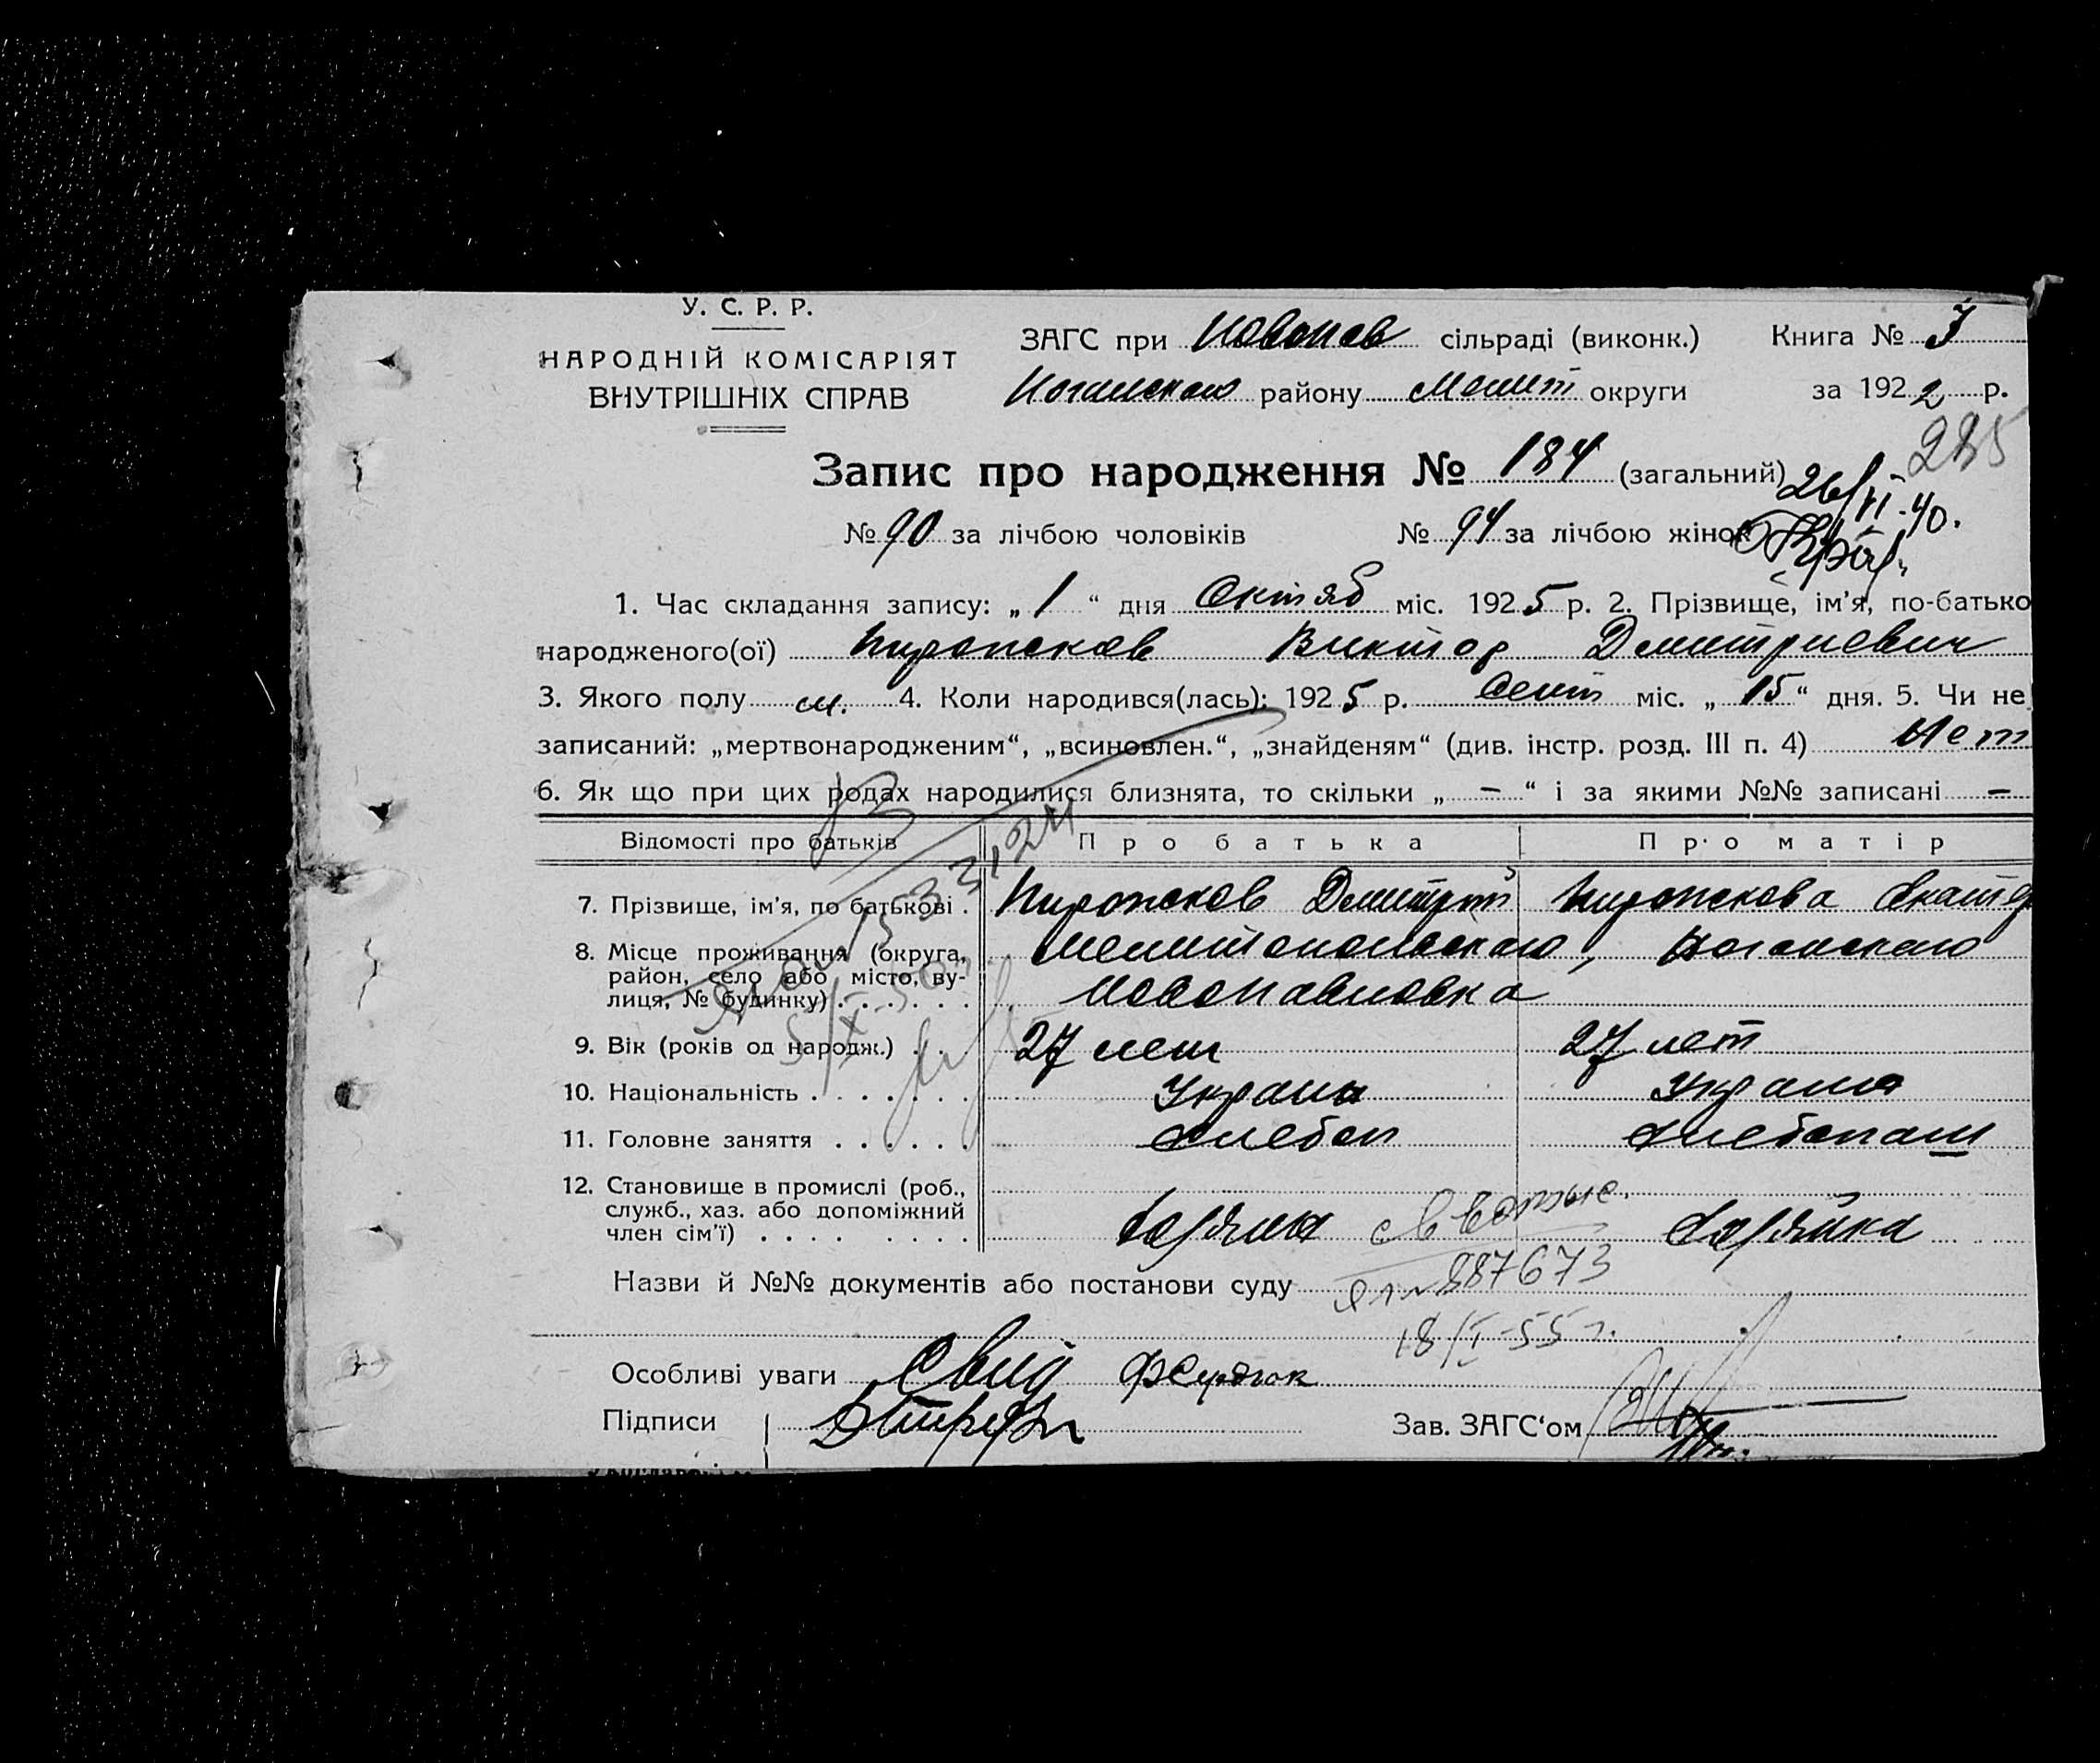 У. С. Р. Р.
НАРОДНІЙ КОМІСАРІЯТ
ВНУТРІШНІХ СПРАВ
ЗАГС при Новопав сільраді (виконк.) Книга №
Ногайского району Мелит округи за 1922 р.
285
Запис про народження № 184 (загальний) 26/VI-40.
№ 90 за лічбою чоловіків № 94 за лічбою жінок
1. Час складання запису: „1“ дня Октяб міс. 1925 р. 2. Прізвище, ім’я, по-батько
народженого(ої) Пирожков Виктор Дмитриевич
3. Якого полу м. 4. Коли народився(лась): 1925 р. Сент міс. „15“ дня. 5. Чи не
записаний: „мертвонародженим“, „всиновлен.“, „знайденям“ (див. інстр. розд. III п. 4) Нет
6. Як що при цих родах народилися близнята, то скільки „ – “ і за якими №№ записані –
Відомості про батьків Про батька Про матір
7. Прізвище, ім’я, по батькові . Пирожков Дмитрий Пирожкова Екатер
8. Місце проживання (округа, район, село або місто, вулиця, № будинку) . . . . . . Мелитопольского, Ногайского
Новопавловка
9. Вік (років од народж.) . . . 27 лет 27 лет
10. Національність . . . . . . . Украин Украин
11. Головне заняття . . . . . Хлебоп Хлебопаш
12. Становище в промислі (роб.,
служб., хаз. або допоміжний
член сім’ї) . . . . . . . . Хозяин Хозяйка
Назви й №№ документів або постанови суду 887673
18/I-55 г.
Особливі уваги
Підписи Зав. ЗАГС‘ом